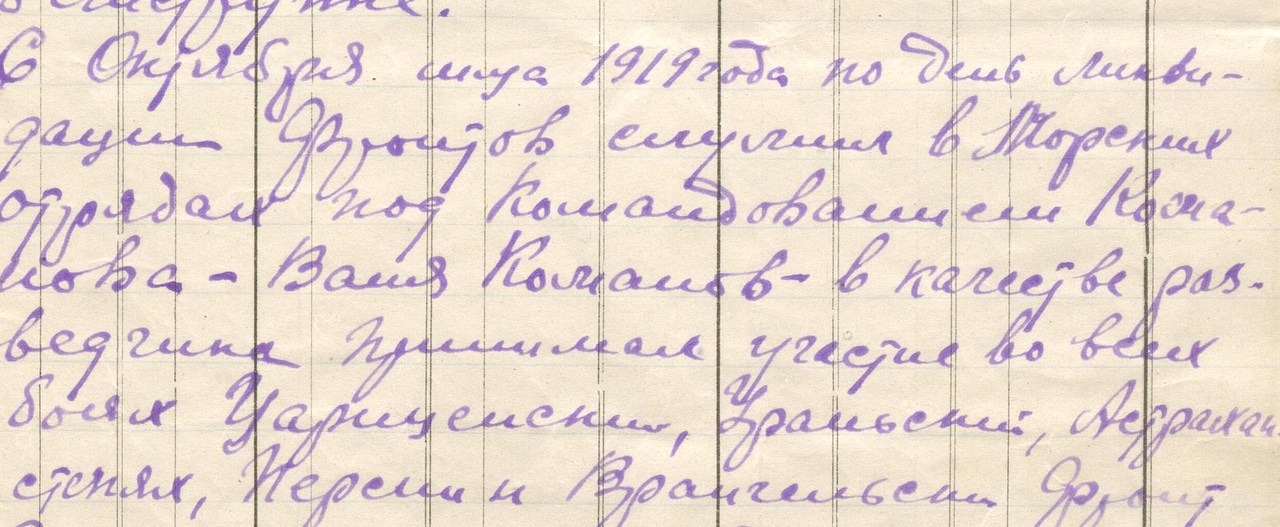 С Октября м-ца 1919 года по день ликви-
дации Фронтов служил в Морских
отрядах под Командованием Кома-
нова - Ваня Команов - в качестве раз-
ведчика принимал участие во всех
боях Цариценский, Уральский, Астрахан.
степях, Персии и Врангельский Фронт